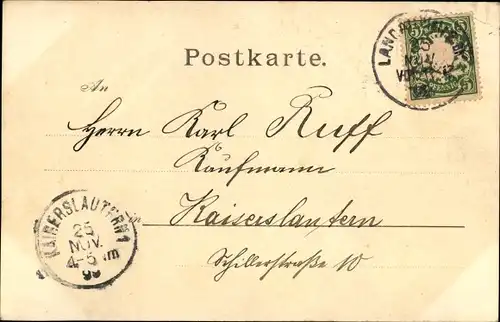 Postkarte.
An
Herrn Karl Ruff
Kaufmann
in
Kaiserslautern
Schillerstraße 10
KAISERSLAUTERN 1
25
NOV.
4-5 Nm
99
5 5